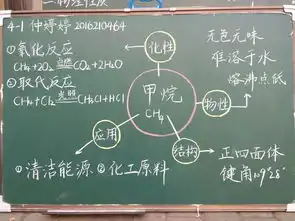 4-1 仲婷婷 2016210464
①氧化反应
CH₄+2O₂ 点燃 CO₂+2H₂O
②取代反应
CH₄+Cl₂ 光照 CH₃Cl+HCl
化性
无色无味
难溶于水
熔沸点低
甲烷
CH₄
物性
应用
结构
①清洁能源 ②化工原料
正四面体
键角109°28′